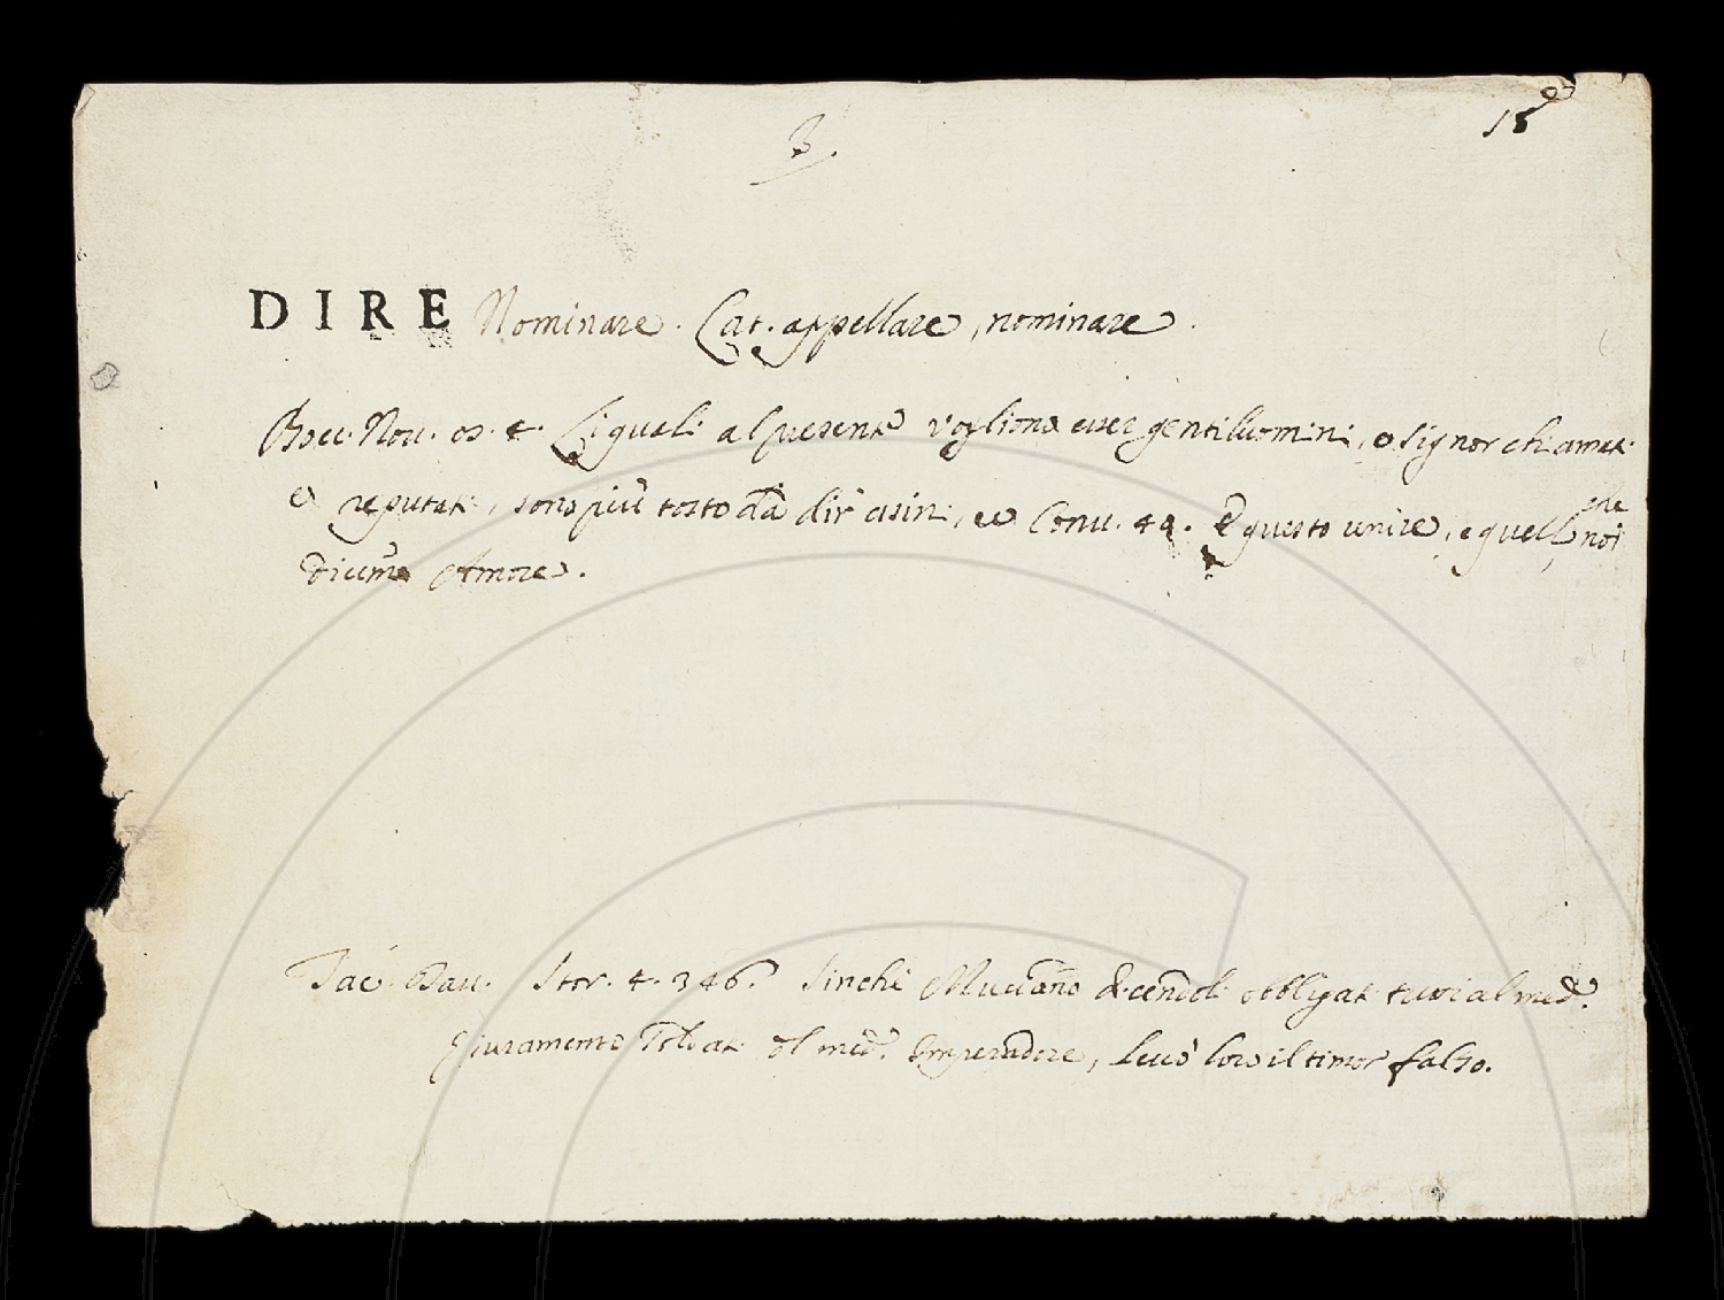 15
3.
DIRE Nominare. Lat. appellare, nominare.
Bocc. Nov. 4. Li quali al presente vogliono esser gentiluomini, e signor chiamati
e reputati, sono più tosto da dir asini, e Conv. 49. E questo unire, è quello che noi
dicemo Amore.
Tac. Dav. Stor. 4. 346. Sinchè Muciano dicendoli obbligati tutti al med.
giuramento soldati del med. Imperadore, levò loro il timor falso.